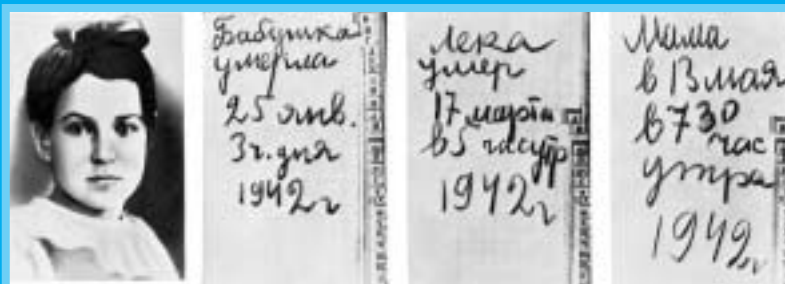 Бабушка
умерла
25 янв.
3 ч. дня
1942 г
Лека
умер
17 марта
в 5 час утр
1942 г
Мама
в 13 мая
в 7 30
час
утра
1942 г